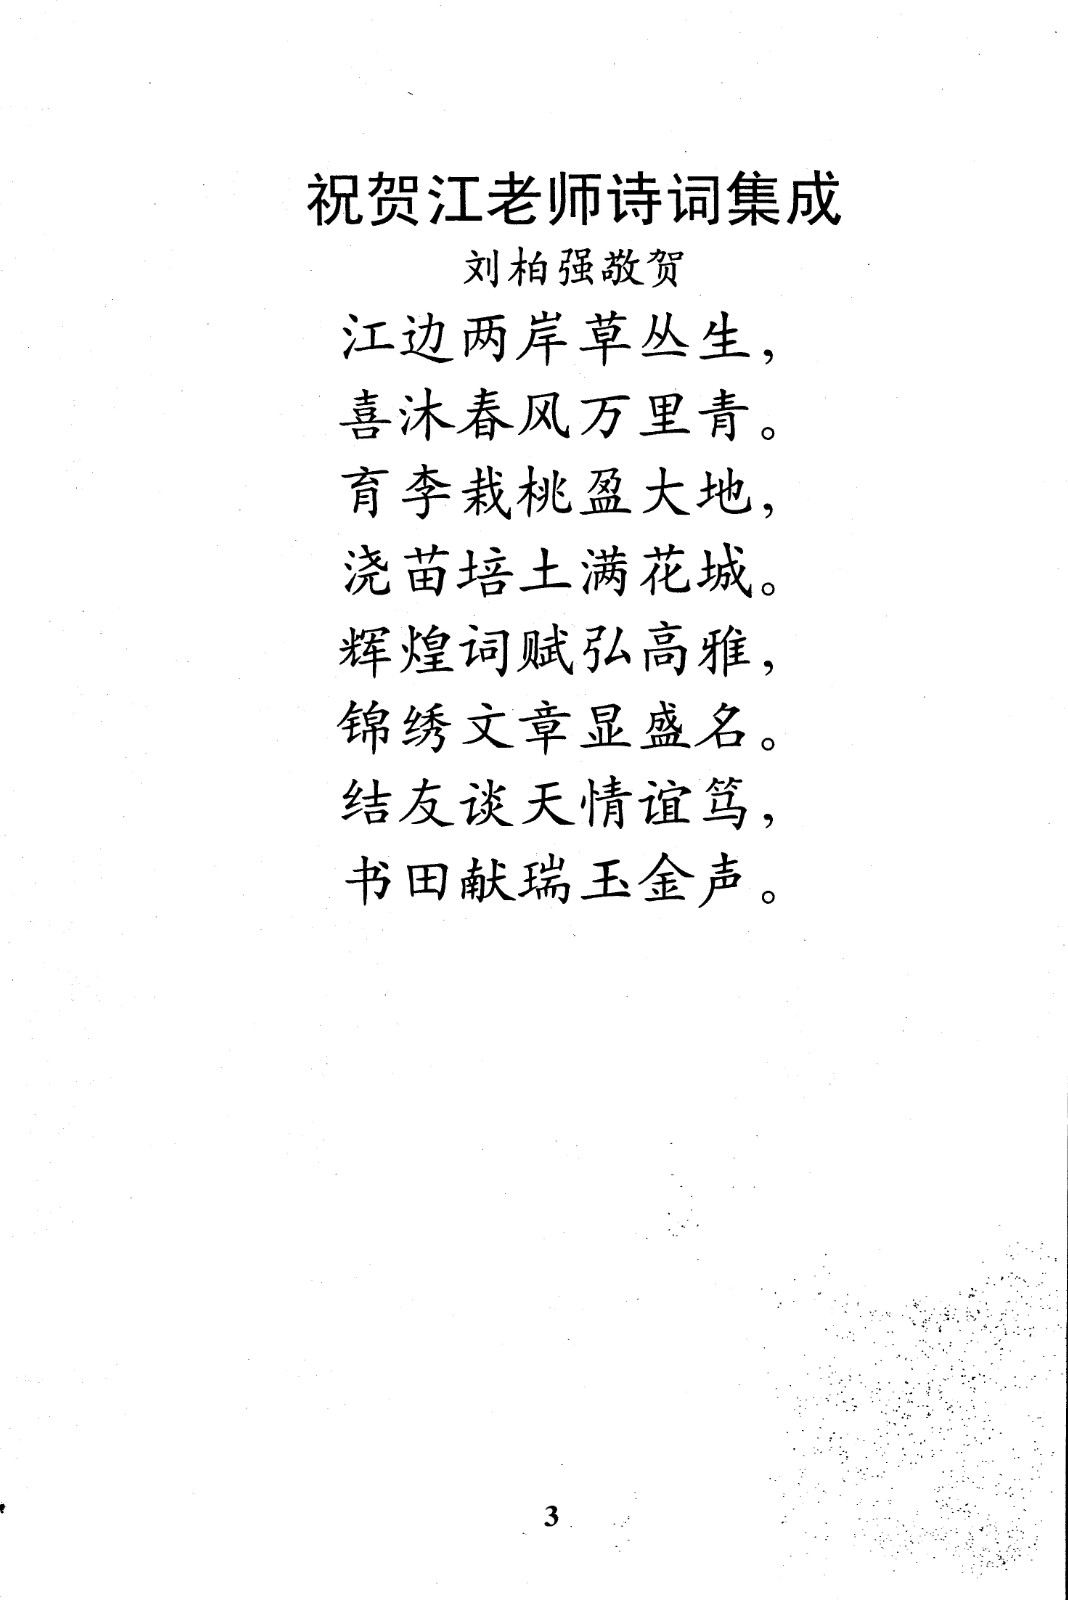 祝贺江老师诗词集成
刘柏强敬贺
江边两岸草丛生，
喜沐春风万里青。
育李栽桃盈大地，
浇苗培土满花城。
辉煌词赋弘高雅，
锦绣文章显盛名。
结友谈天情谊笃，
书田献瑞玉金声。
3